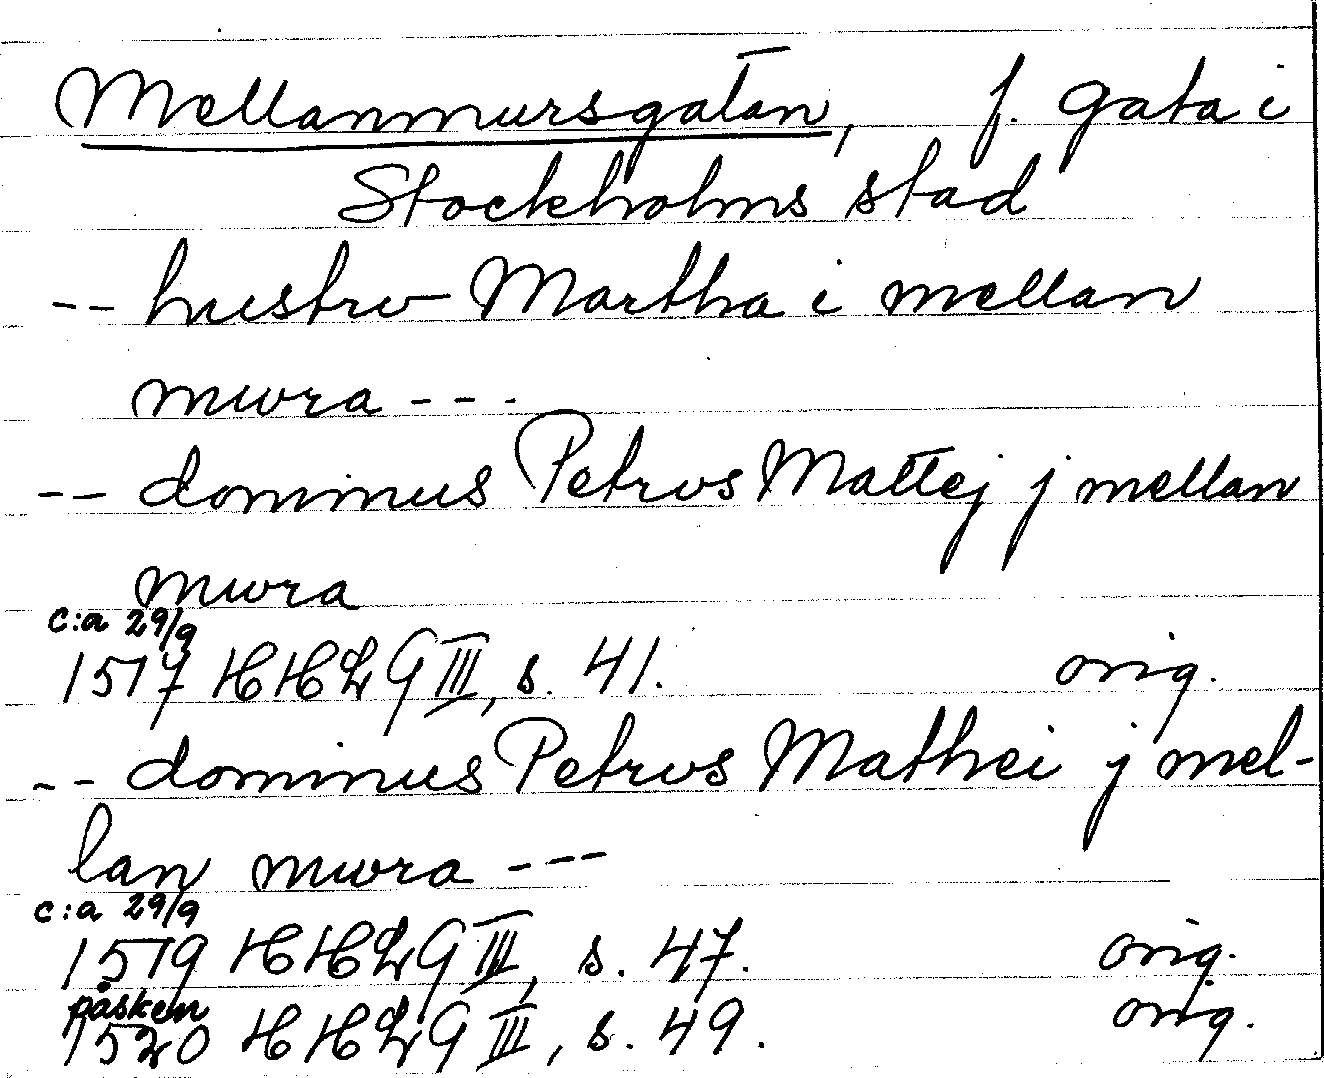 Mellanmursgatan, f. gata i
Stockholms stad
-- hustrv Martha i mellan
mvra ---
-- dominus Petrvs Mattej j mellan
mvra
c:a 29/9
1517 HHLG III, s. 41. orig.
-- dominus Petrvs Mathei j mel-
lan mvra ---
c:a 29/9
1519 HHLG III, s. 47. orig.
påsken
1520 HHLG III, s. 49. orig.